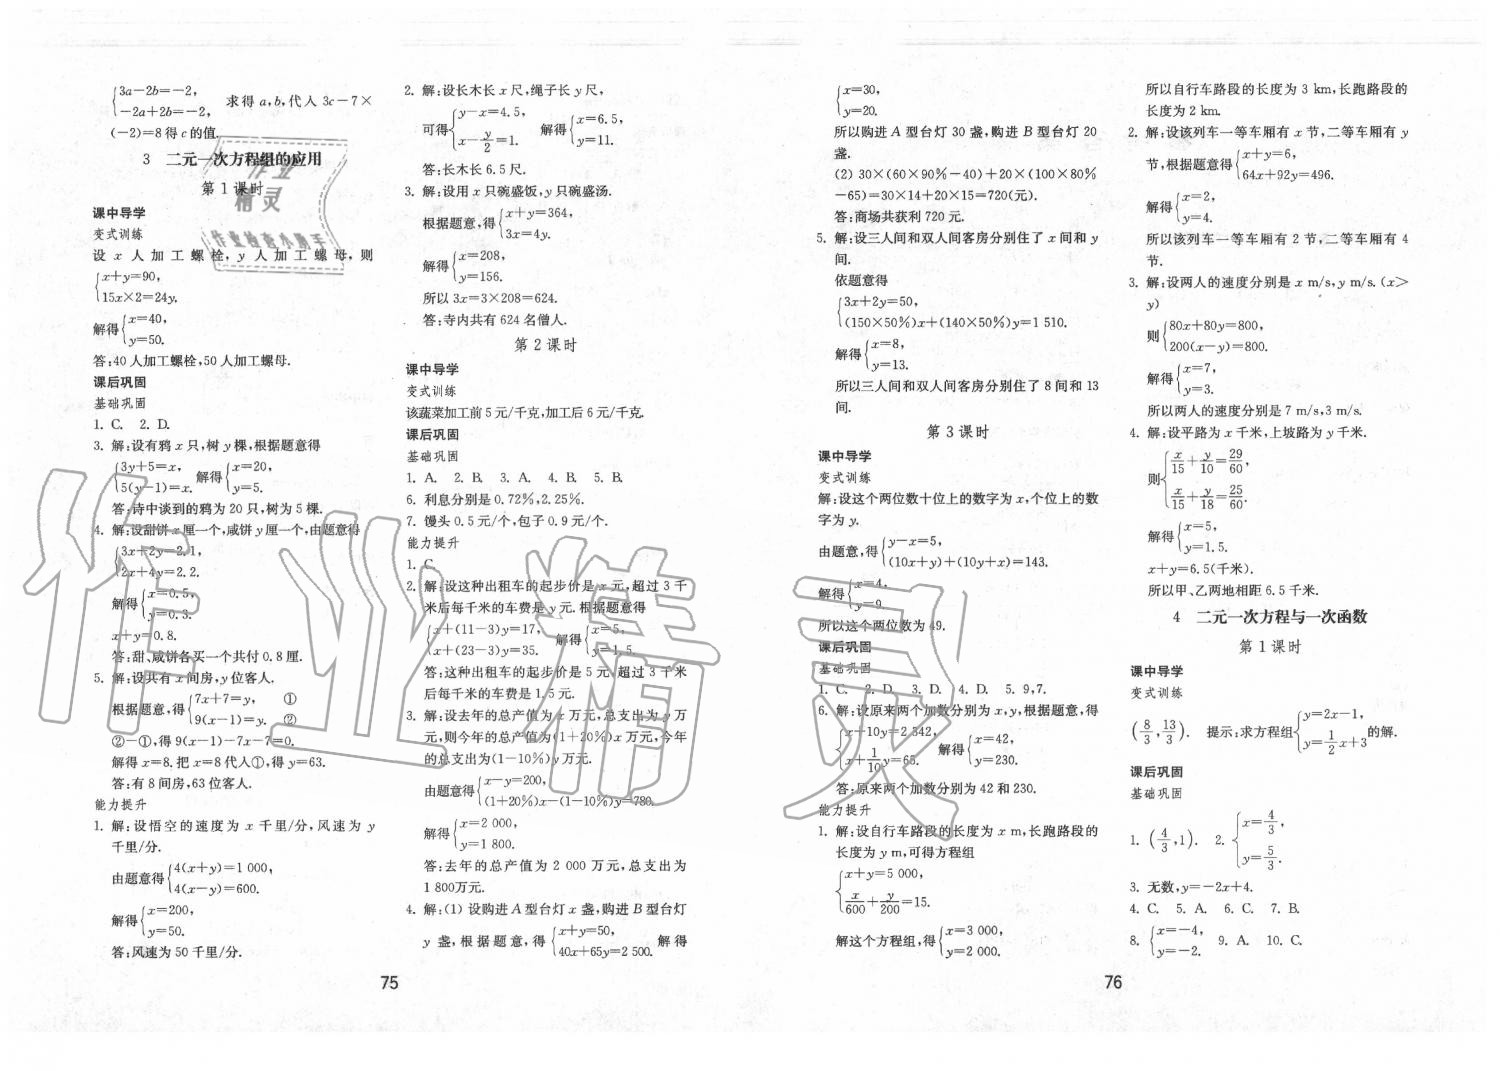 {3a-2b=-2,
-2a+2b=-2, 求得 a,b,代入 3c-7×
(-2)=8得 c 的值.
3 二元一次方程组的应用
第1课时
课中导学
变式训练
设 x 人加工螺栓,y 人加工螺母,则
{x+y=90,
15x×2=24y.
解得{x=40,
y=50.
答:40人加工螺栓,50人加工螺母.
课后巩固
基础巩固
1. C. 2. D.
3. 解:设有鸦 x 只,树 y 棵,根据题意得
{3y+5=x,
5(y-1)=x. 解得{x=20,
y=5.
答:诗中谈到的鸦为20只,树为5棵.
4. 解:设甜饼 x 厘一个,咸饼 y 厘一个,由题意得
{3x+2y=2.1,
2x+4y=2.2.
解得{x=0.5,
y=0.3.
x+y=0.8.
答:甜、咸饼各买一个共付0.8厘.
5. 解:设共有 x 间房,y 位客人.
根据题意,得{7x+7=y, ①
9(x-1)=y. ②
②-①,得9(x-1)-7x-7=0.
解得 x=8.把 x=8代入①,得 y=63.
答:有8间房,63位客人.
能力提升
1. 解:设悟空的速度为 x 千里/分,风速为 y
千里/分.
由题意得{4(x+y)=1 000,
4(x-y)=600.
解得{x=200,
y=50.
答:风速为50千里/分.
2. 解:设长木长 x 尺,绳子长 y 尺,
可得{y-x=4.5,
x-y/2=1. 解得{x=6.5,
y=11.
答:长木长6.5尺.
3. 解:设用 x 只碗盛饭,y 只碗盛汤.
根据题意,得{x+y=364,
3x=4y.
解得{x=208,
y=156.
所以 3x=3×208=624.
答:寺内共有624名僧人.
第2课时
课中导学
变式训练
该蔬菜加工前5元/千克,加工后6元/千克.
课后巩固
基础巩固
1. A. 2. B. 3. A. 4. B. 5. B.
6. 利息分别是0.72%,2.25%.
7. 馒头0.5元/个,包子0.9元/个.
能力提升
1. C.
2. 解:设这种出租车的起步价是 x 元,超过3千
米后每千米的车费是 y 元.根据题意得
{x+(11-3)y=17,
x+(23-3)y=35. 解得{x=5,
y=1.5.
答:这种出租车的起步价是5元,超过3千米
后每千米的车费是1.5元.
3. 解:设去年的总产值为 x 万元,总支出为 y 万
元,则今年的总产值为(1+20%)x 万元,今年
的总支出为(1-10%)y 万元.
由题意得{x-y=200,
(1+20%)x-(1-10%)y=780.
解得{x=2 000,
y=1 800.
答:去年的总产值为2 000万元,总支出为
1 800万元.
4. 解:(1)设购进 A 型台灯 x 盏,购进 B 型台灯
y 盏,根据题意,得{x+y=50,
40x+65y=2 500. 解得
75
{x=30,
y=20.
所以购进 A 型台灯30盏,购进 B 型台灯20
盏.
(2)30×(60×90%-40)+20×(100×80%
-65)=30×14+20×15=720(元).
答:商场共获利720元.
5. 解:设三人间和双人间客房分别住了 x 间和 y
间.
依题意得
{3x+2y=50,
(150×50%)x+(140×50%)y=1 510.
解得{x=8,
y=13.
所以三人间和双人间客房分别住了8间和13
间.
第3课时
课中导学
变式训练
解:设这个两位数十位上的数字为 x,个位上的数
字为 y.
由题意,得{y-x=5,
(10x+y)+(10y+x)=143.
解得{x=4,
y=9.
所以这个两位数为49.
课后巩固
基础巩固
1. C. 2. D. 3. D. 4. D. 5. 9,7.
6. 解:设原来两个加数分别为 x,y,根据题意,得
{x+10y=2 342,
x+1/10y=65. 解得{x=42,
y=230.
答:原来两个加数分别为42和230.
能力提升
1. 解:设自行车路段的长度为 x m,长跑路段的
长度为 y m,可得方程组
{x+y=5 000,
x/600+y/200=15.
解这个方程组,得{x=3 000,
y=2 000.
所以自行车路段的长度为3 km,长跑路段的
长度为2 km.
2. 解:设该列车一等车厢有 x 节,二等车厢有 y
节,根据题意得{x+y=6,
64x+92y=496.
解得{x=2,
y=4.
所以该列车一等车厢有2节,二等车厢有4
节.
3. 解:设两人的速度分别是 x m/s,y m/s.(x>
y)
则{80x+80y=800,
200(x-y)=800.
解得{x=7,
y=3.
所以两人的速度分别是7 m/s,3 m/s.
4. 解:设平路为 x 千米,上坡路为 y 千米.
则{x/15+y/10=29/60,
x/15+y/18=25/60.
解得{x=5,
y=1.5.
x+y=6.5(千米).
所以甲、乙两地相距6.5千米.
4 二元一次方程与一次函数
第1课时
课中导学
变式训练
(8/3,13/3). 提示:求方程组{y=2x-1,
y=1/2x+3的解.
课后巩固
基础巩固
1. (4/3,1). 2. {x=4/3,
y=5/3.
3. 无数,y=-2x+4.
4. C. 5. A. 6. C. 7. B.
8. {x=-4,
y=-2. 9. A. 10. C.
76
作业
精灵
作业检查小帮手
作业精灵